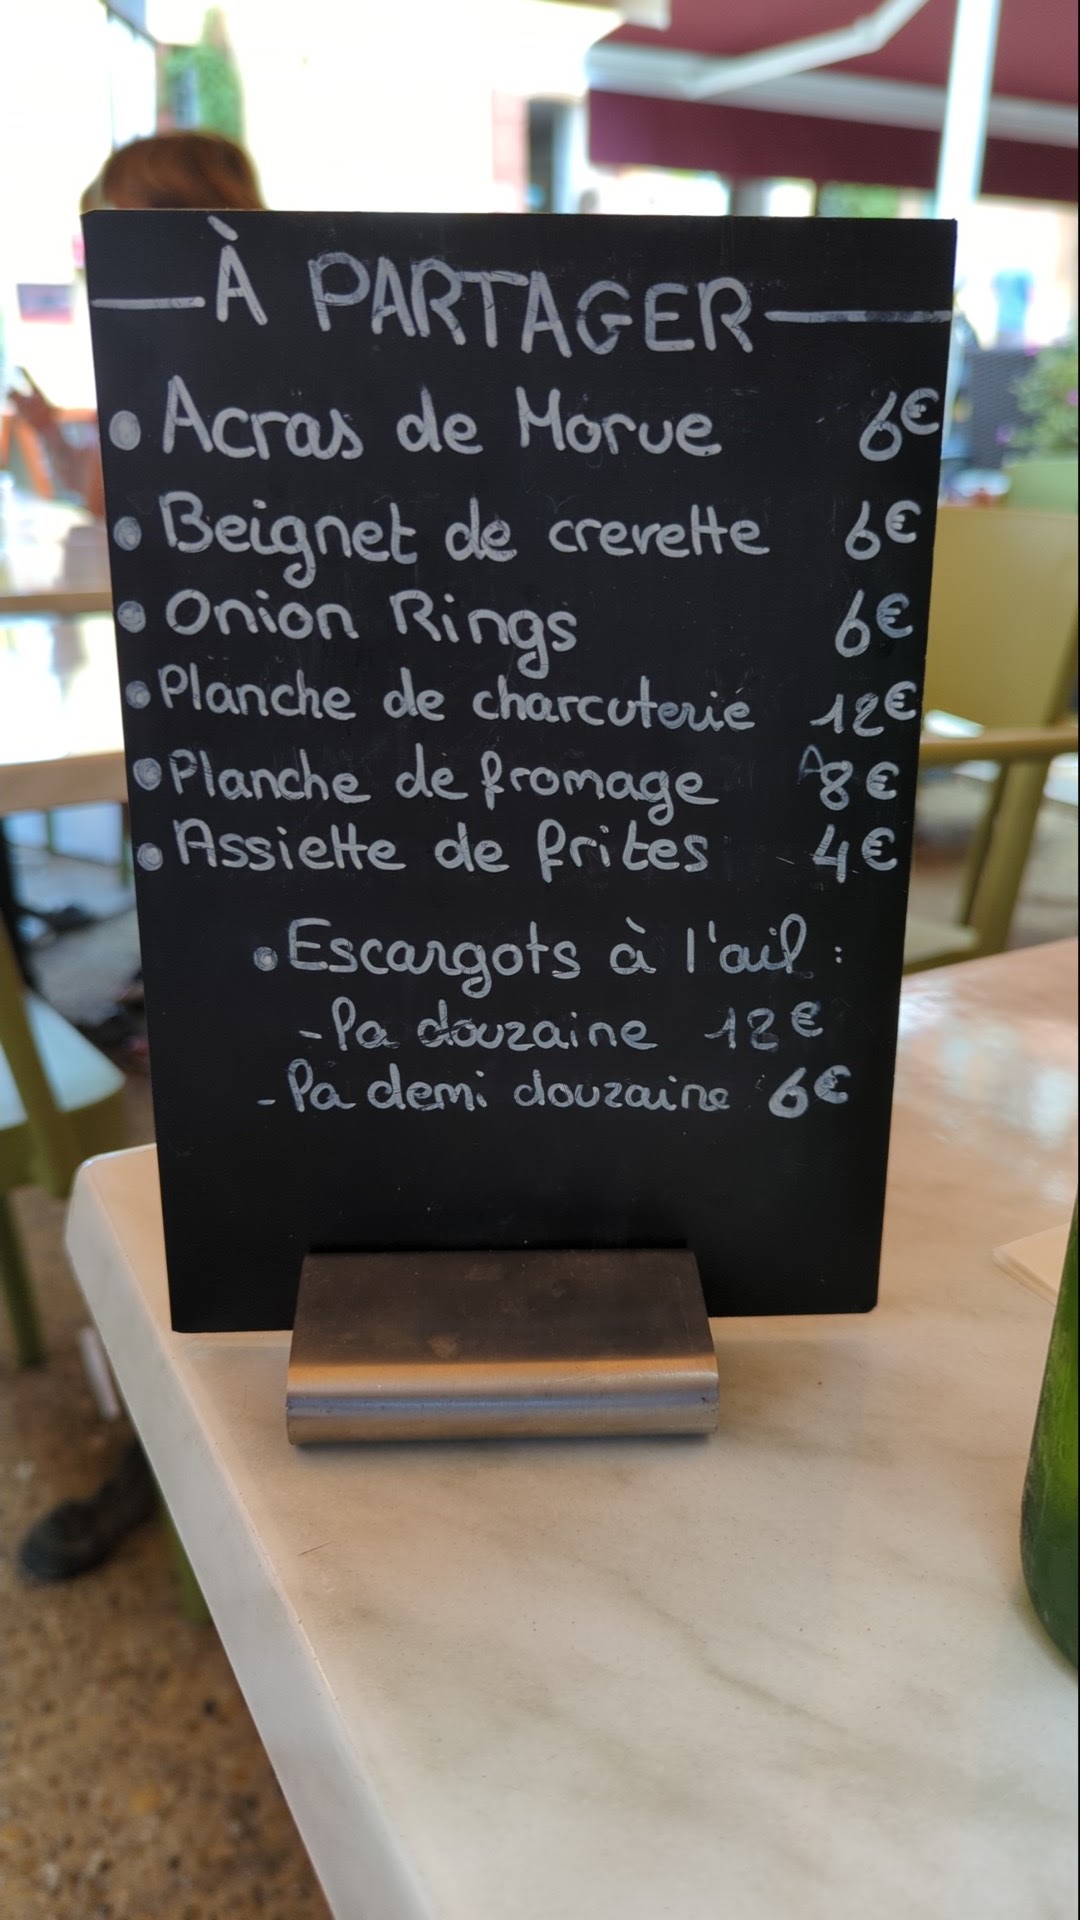 À PARTAGER
• Acras de Morue 6€
• Beignet de crevette 6€
• Onion Rings 6€
• Planche de charcuterie 12€
• Planche de fromage 8€
• Assiette de frites 4€
• Escargots à l'ail :
- la douzaine 12€
- la demi douzaine 6€